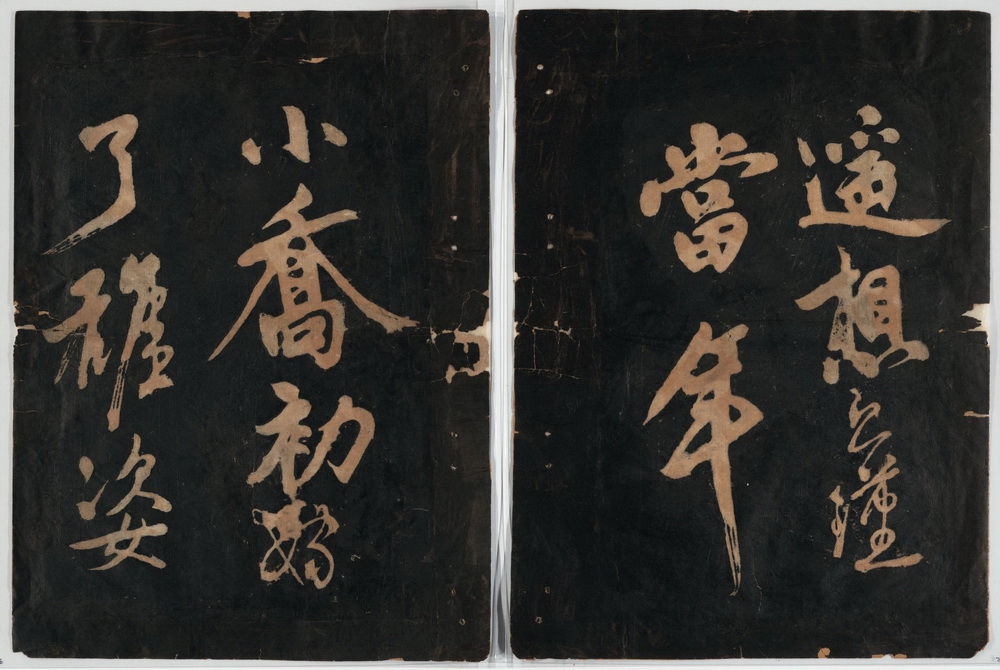 遥想公瑾
當年
小喬初嫁
了雄姿